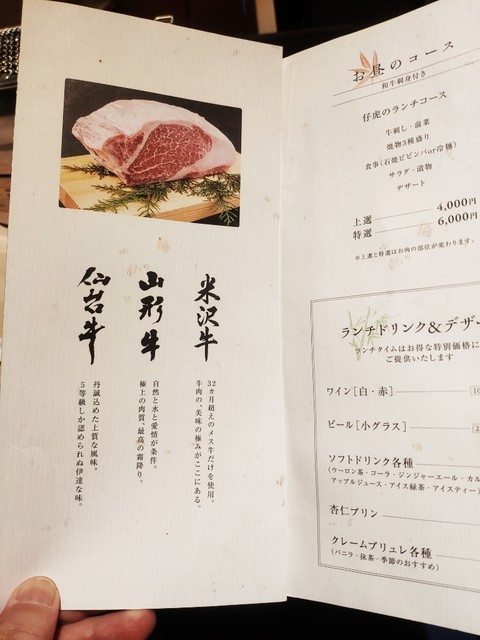 米沢牛
32カ月超えのメス牛だけを使用。
牛肉の、美味の極みがここにある。
山形牛
自然と水と愛情が条件。
極上の肉質、最高の霜降り。
仙台牛
丹誠込めた上質な風味。
5等級しか認められぬ伊達な味。
お昼のコース
和牛刺身付き
仔虎のランチコース
牛刺し・前菜
焼物3種盛り
食事(石焼ビビンバor冷麺)
サラダ・漬物
デザート
上選 4,000円
特選 6,000円
※上選と特選はお肉の部位が変わります。
ランチドリンク&デザー
ランチタイムはお得な特別価格に
ご提供いたします
ワイン[白・赤]
ビール[小グラス]
ソフトドリンク各種
(ウーロン茶・コーラ・ジンジャーエール・カル
アップルジュース・アイス緑茶・アイスティー)
杏仁プリン
クレームブリュレ各種
(バニラ・抹茶・季節のおすすめ)